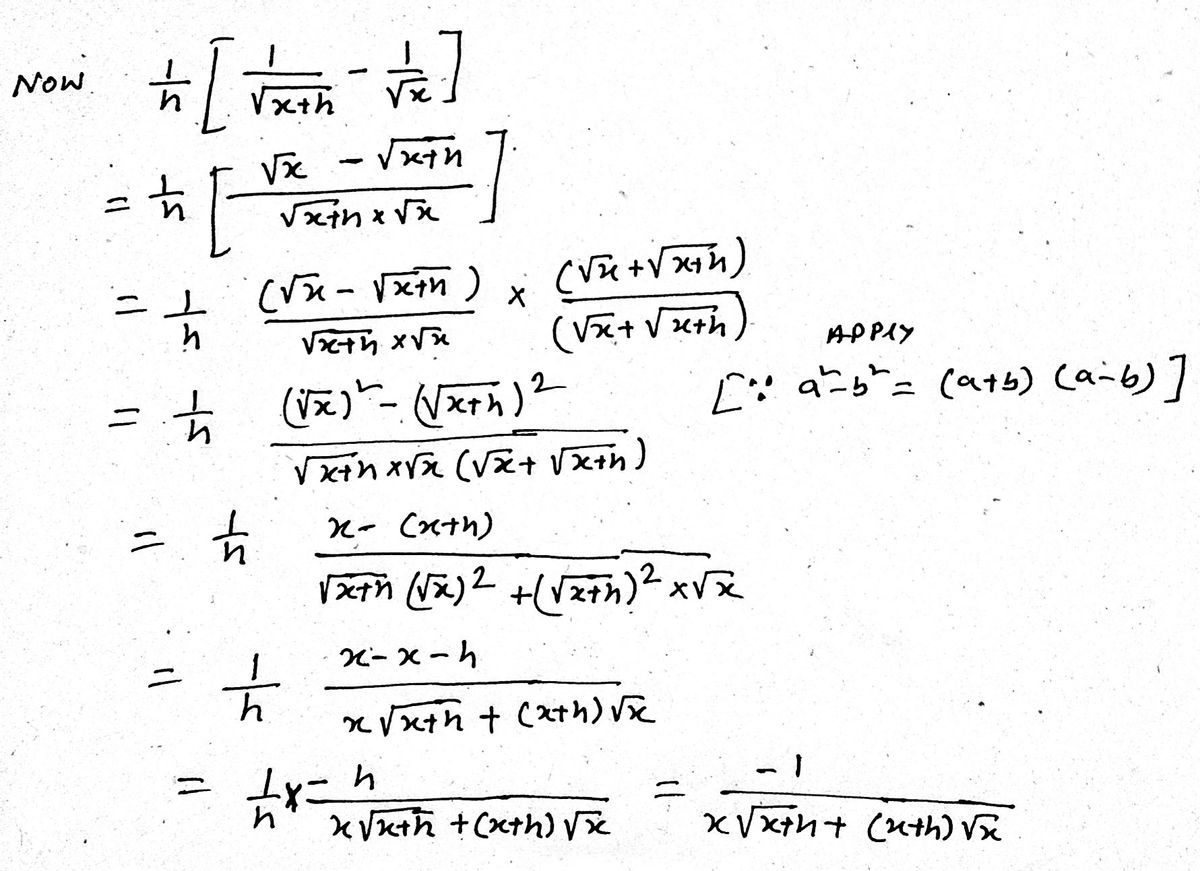 Now 1/h [ 1/√(x+h) - 1/√x ]
= 1/h [ (√x - √(x+h)) / (√(x+h) × √x) ]
= 1/h (√x - √(x+h)) / (√(x+h) × √x) × (√x + √(x+h)) / (√x + √(x+h))
APPLY
= 1/h ((√x)² - (√(x+h))²) / (√(x+h) × √x (√x + √(x+h))) [∵ a² - b² = (a+b) (a-b)]
= 1/h (x - (x+h)) / (√(x+h) (√x)² + (√(x+h))² × √x)
= 1/h (x - x - h) / (x√(x+h) + (x+h)√x)
= 1/h × -h / (x√(x+h) + (x+h)√x) = -1 / (x√(x+h) + (x+h)√x)